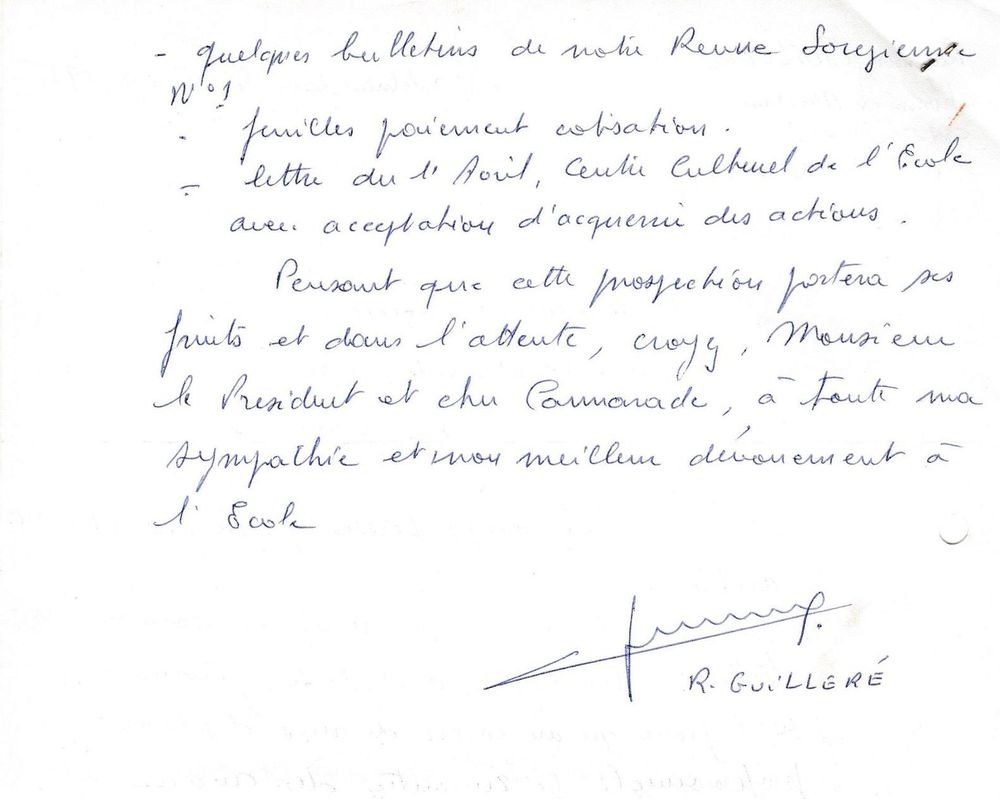 - quelques bulletins de notre Revue Sorézienne
N°1
- feuilles paiement cotisation.
- lettre du 1' Avril, Centre Culturel de l'Ecole
avec acceptation d'acquérir des actions.
Pensant que cette prospection portera ses
fruits et dans l'attente, croyez, Monsieur
le Président et cher Cammarade, à toute ma
sympathie et mon meilleur dévouement à
l'Ecole
R. GUILLERÉ